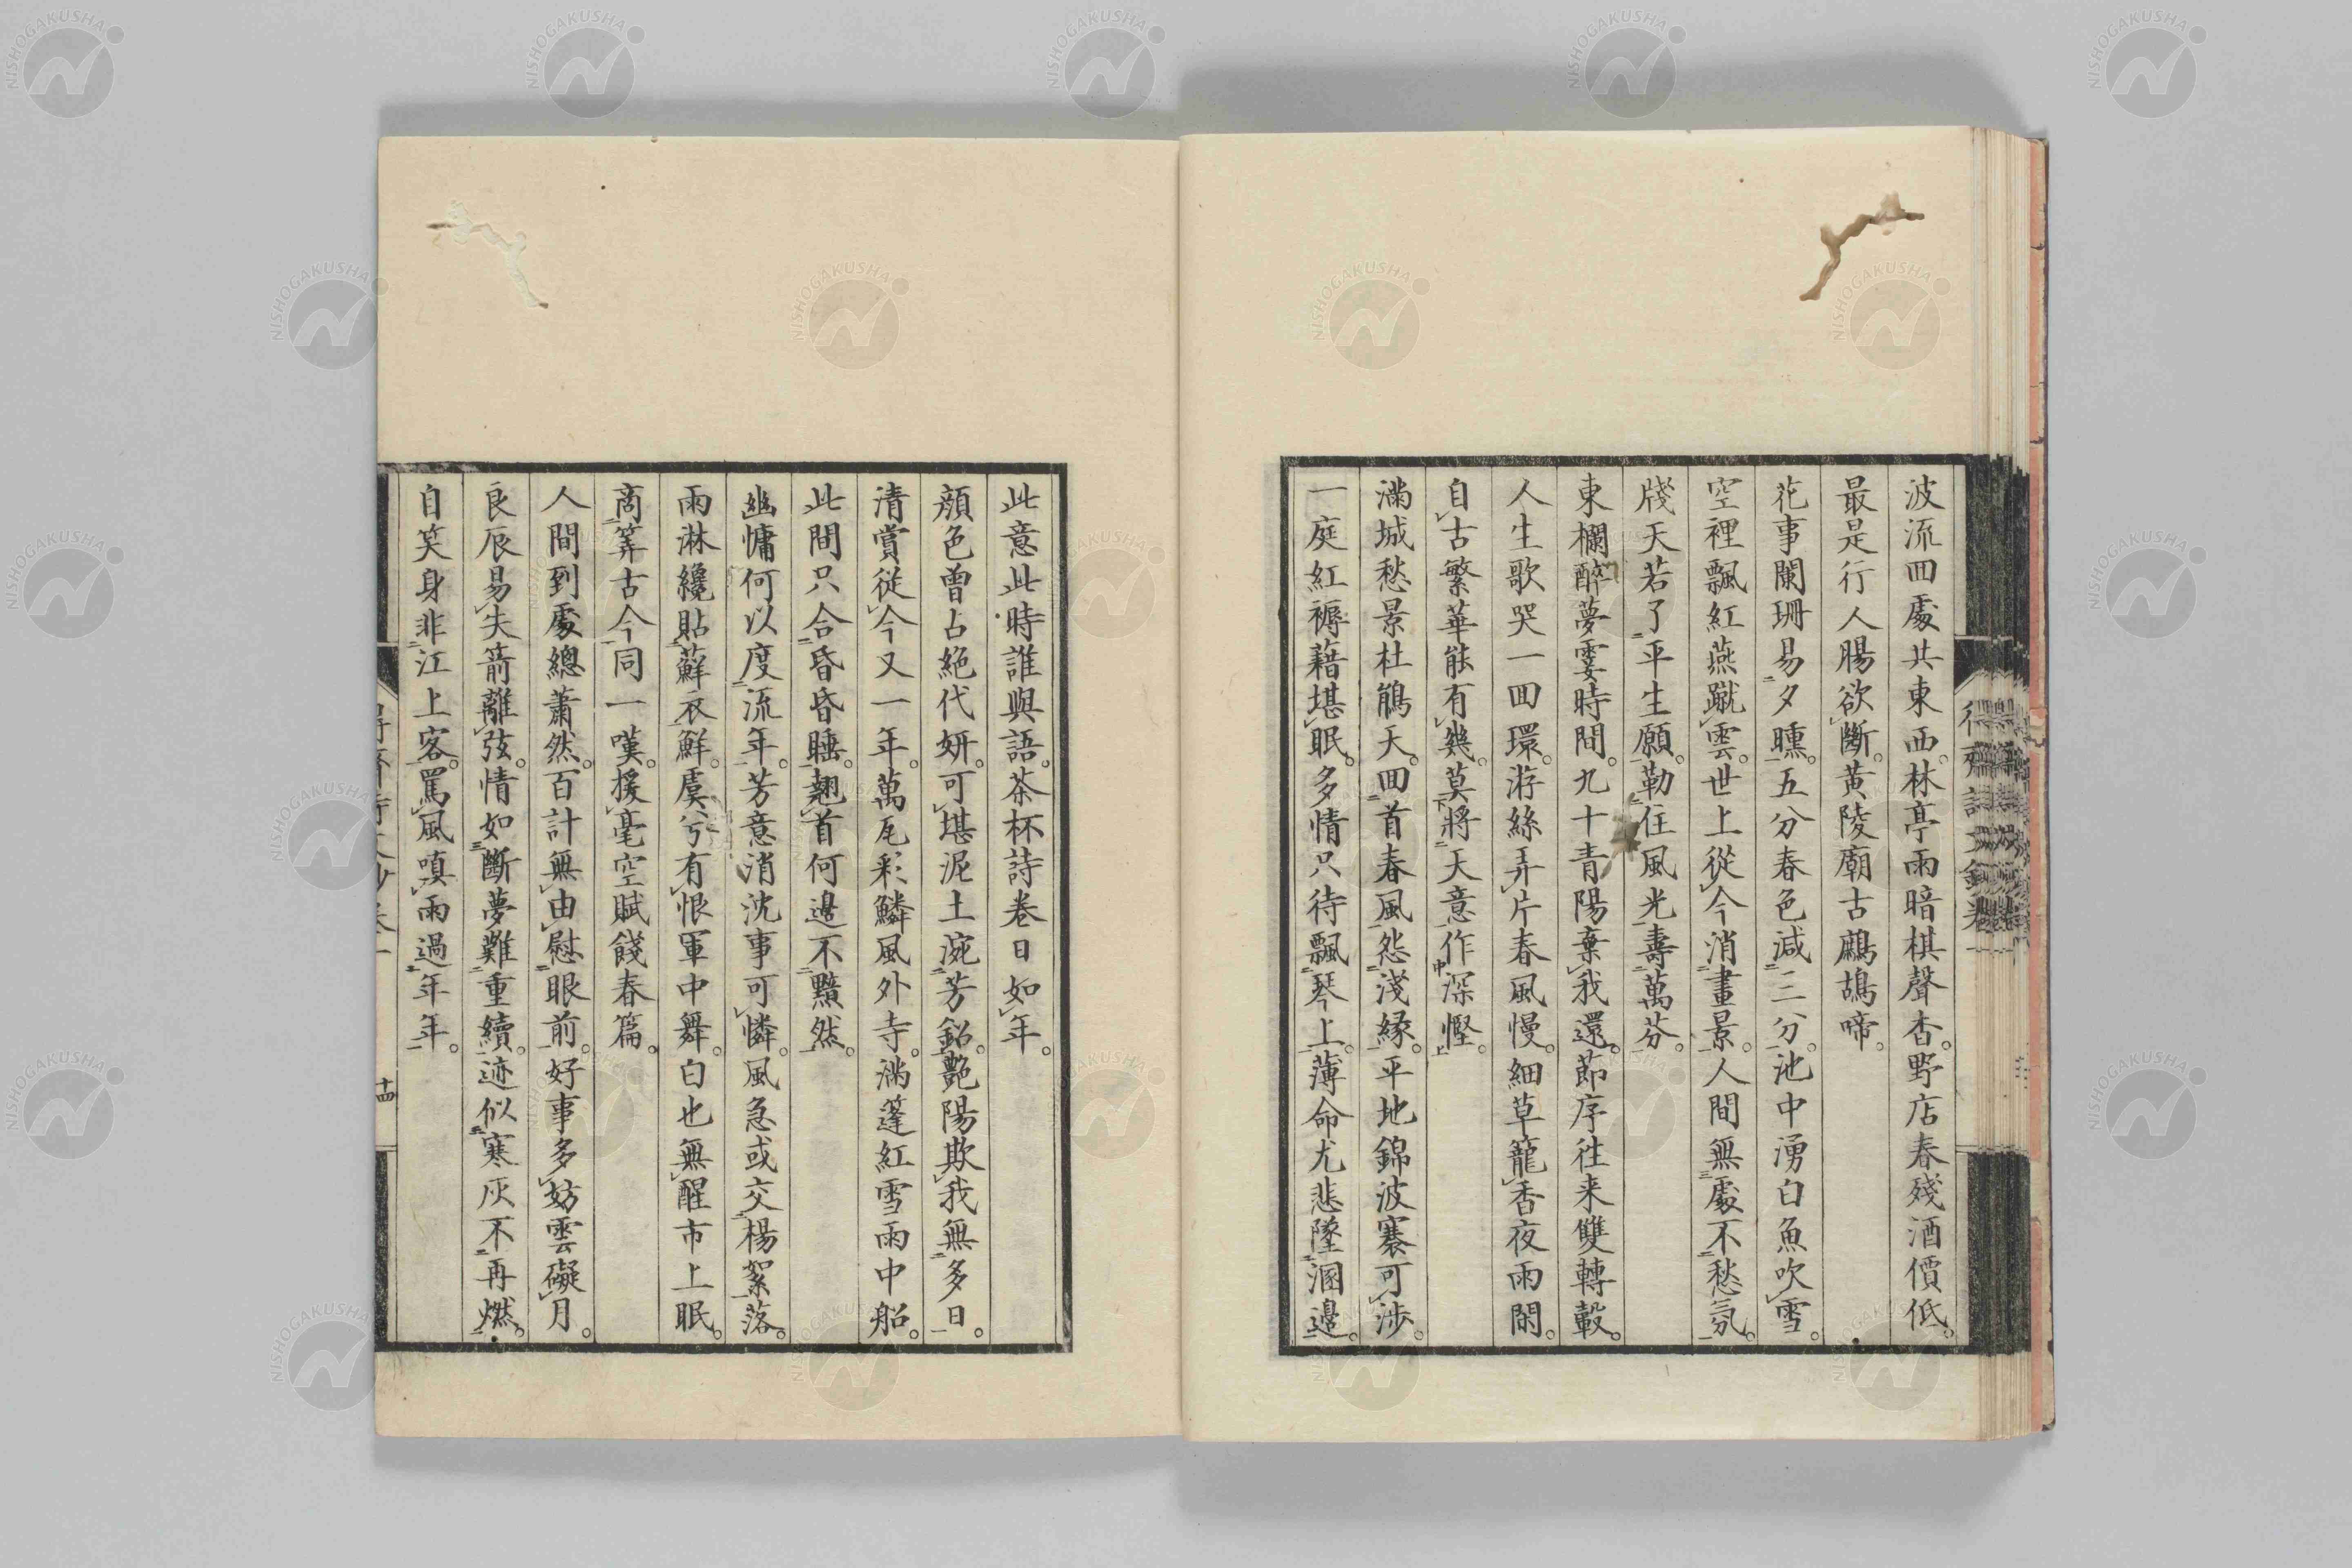 波流回處共東西林亭雨暗棋聲杳野店春殘酒價低
最是行人腸欲斷黃陵廟古鷓鴣啼
花事闌珊易夕曛五分春色減三分池中湧白魚吹雪
空裡飄紅燕蹴雲世上從今消晝景人間無處不愁氛
牋天若了平生願勒住風光壽萬芬
東欄醉夢霎時間九十青陽棄我還節序往来雙轉轂
人生歌哭一回環游絲弄片春風慢細草籠香夜雨閑
自古繁華能有幾莫將天意作深慳
滿城愁景杜鵑天回首春風怨淺緣平地錦波褰可涉
一庭紅褥藉堪眠多情只待飄琴上薄命尤悲墬溷邊
此意此時誰與語茶杯詩卷日如年
顏色曾占絕代妍可堪泥土涴芳鈿艷陽欺我無多日
清賞從今又一年萬瓦彩鱗風外寺滿篷紅雪雨中船
此間只合昏昏睡翹首何邊不黯然
幽慵何以度流年芳意消沈事可憐風急或交楊絮落
雨淋纔貼蘚衣鮮虞兮有恨軍中舞白也無醒市上眠
商筭古今同一嘆援毫空賦餞春篇
人間到處總蕭然百計無由慰眼前好事多妨雲礙月
良辰易失箭離弦情如斷夢難重續迹似寒灰不再燃
自笑身非江上客罵風嗔雨過年年
十四
NISHOGAKUSHA